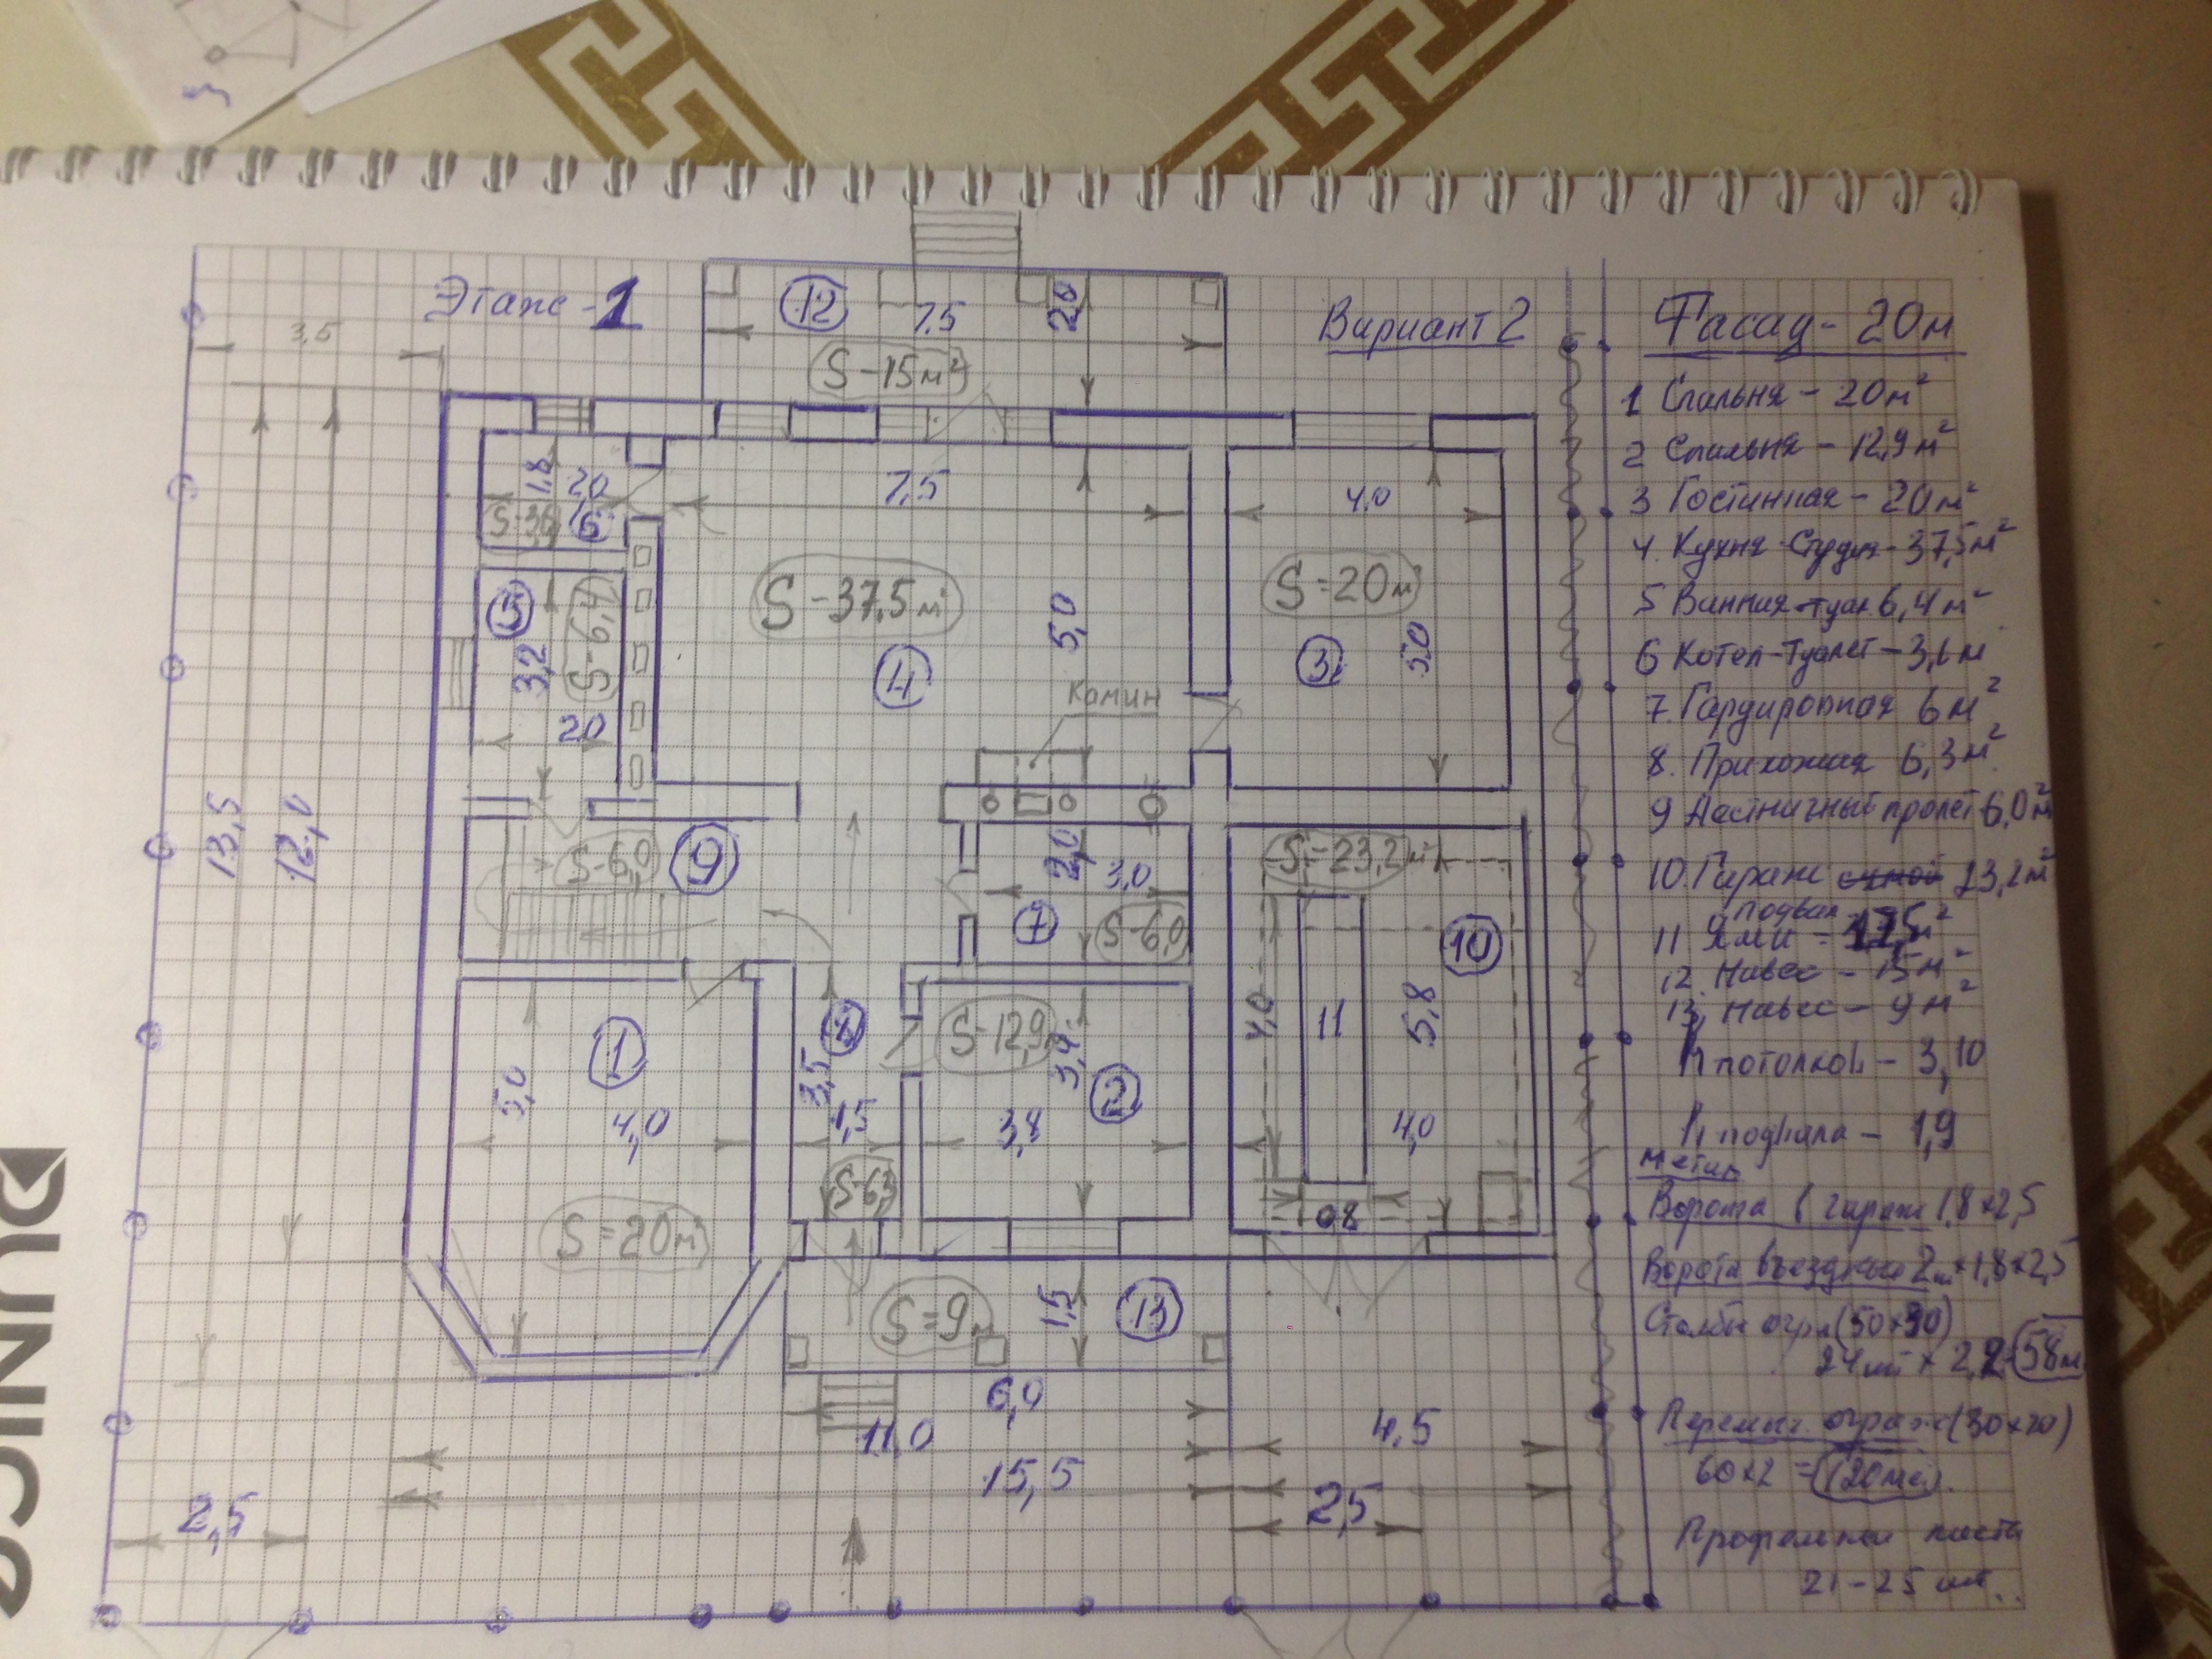 Этаж-1
Вариант 2
3,5
12
7,5
2,0
S-15м²
1,8
2,0
S-3,6
6
7,5
4,0
5
S-6,4
3,2
2,0
S-37,5м²
4
5,0
S=20м²
3
5,0
камин
13,5
12,0
S-6,0
9
2,0
3,0
7
S-6,0
S-23,2м²
10
1
5,0
4,0
S=20м²
8
3,5
1,5
S-6,3
S-12,9м
3,4
2
3,8
4,0
11
5,8
4,0
08
S=9м
1,5
13
6,0
11,0
15,5
4,5
2,5
2,5
Фасад - 20м
1 Спальня - 20м²
2 Спальня - 12,9м²
3 Гостинная - 20м²
4. Кухня-Студия-37,5м²
5 Ванная-туал. 6,4м²
6 Котел-Туалет-3,6м
7. Гардировная 6м²
8. Прихожая 6,3м²
9 Лестничный пролет 6,0м²
10. Гараж 23,2м²
подвал
11 Яма - 17,5м²
12. Навес - 15м²
13. Навес - 9м²
h потолков - 3,10
h подвала - 1,9
Метал
Ворота в гараж 1,8×2,5
Ворота въездные 2шт×1,8×2,5
Столбы огра(50×90)
24шт × 2,2=58м
Перемыч. ограж(30×20)
60×2 =(120ме)
Профильные листы
21-25 шт..
UNISC